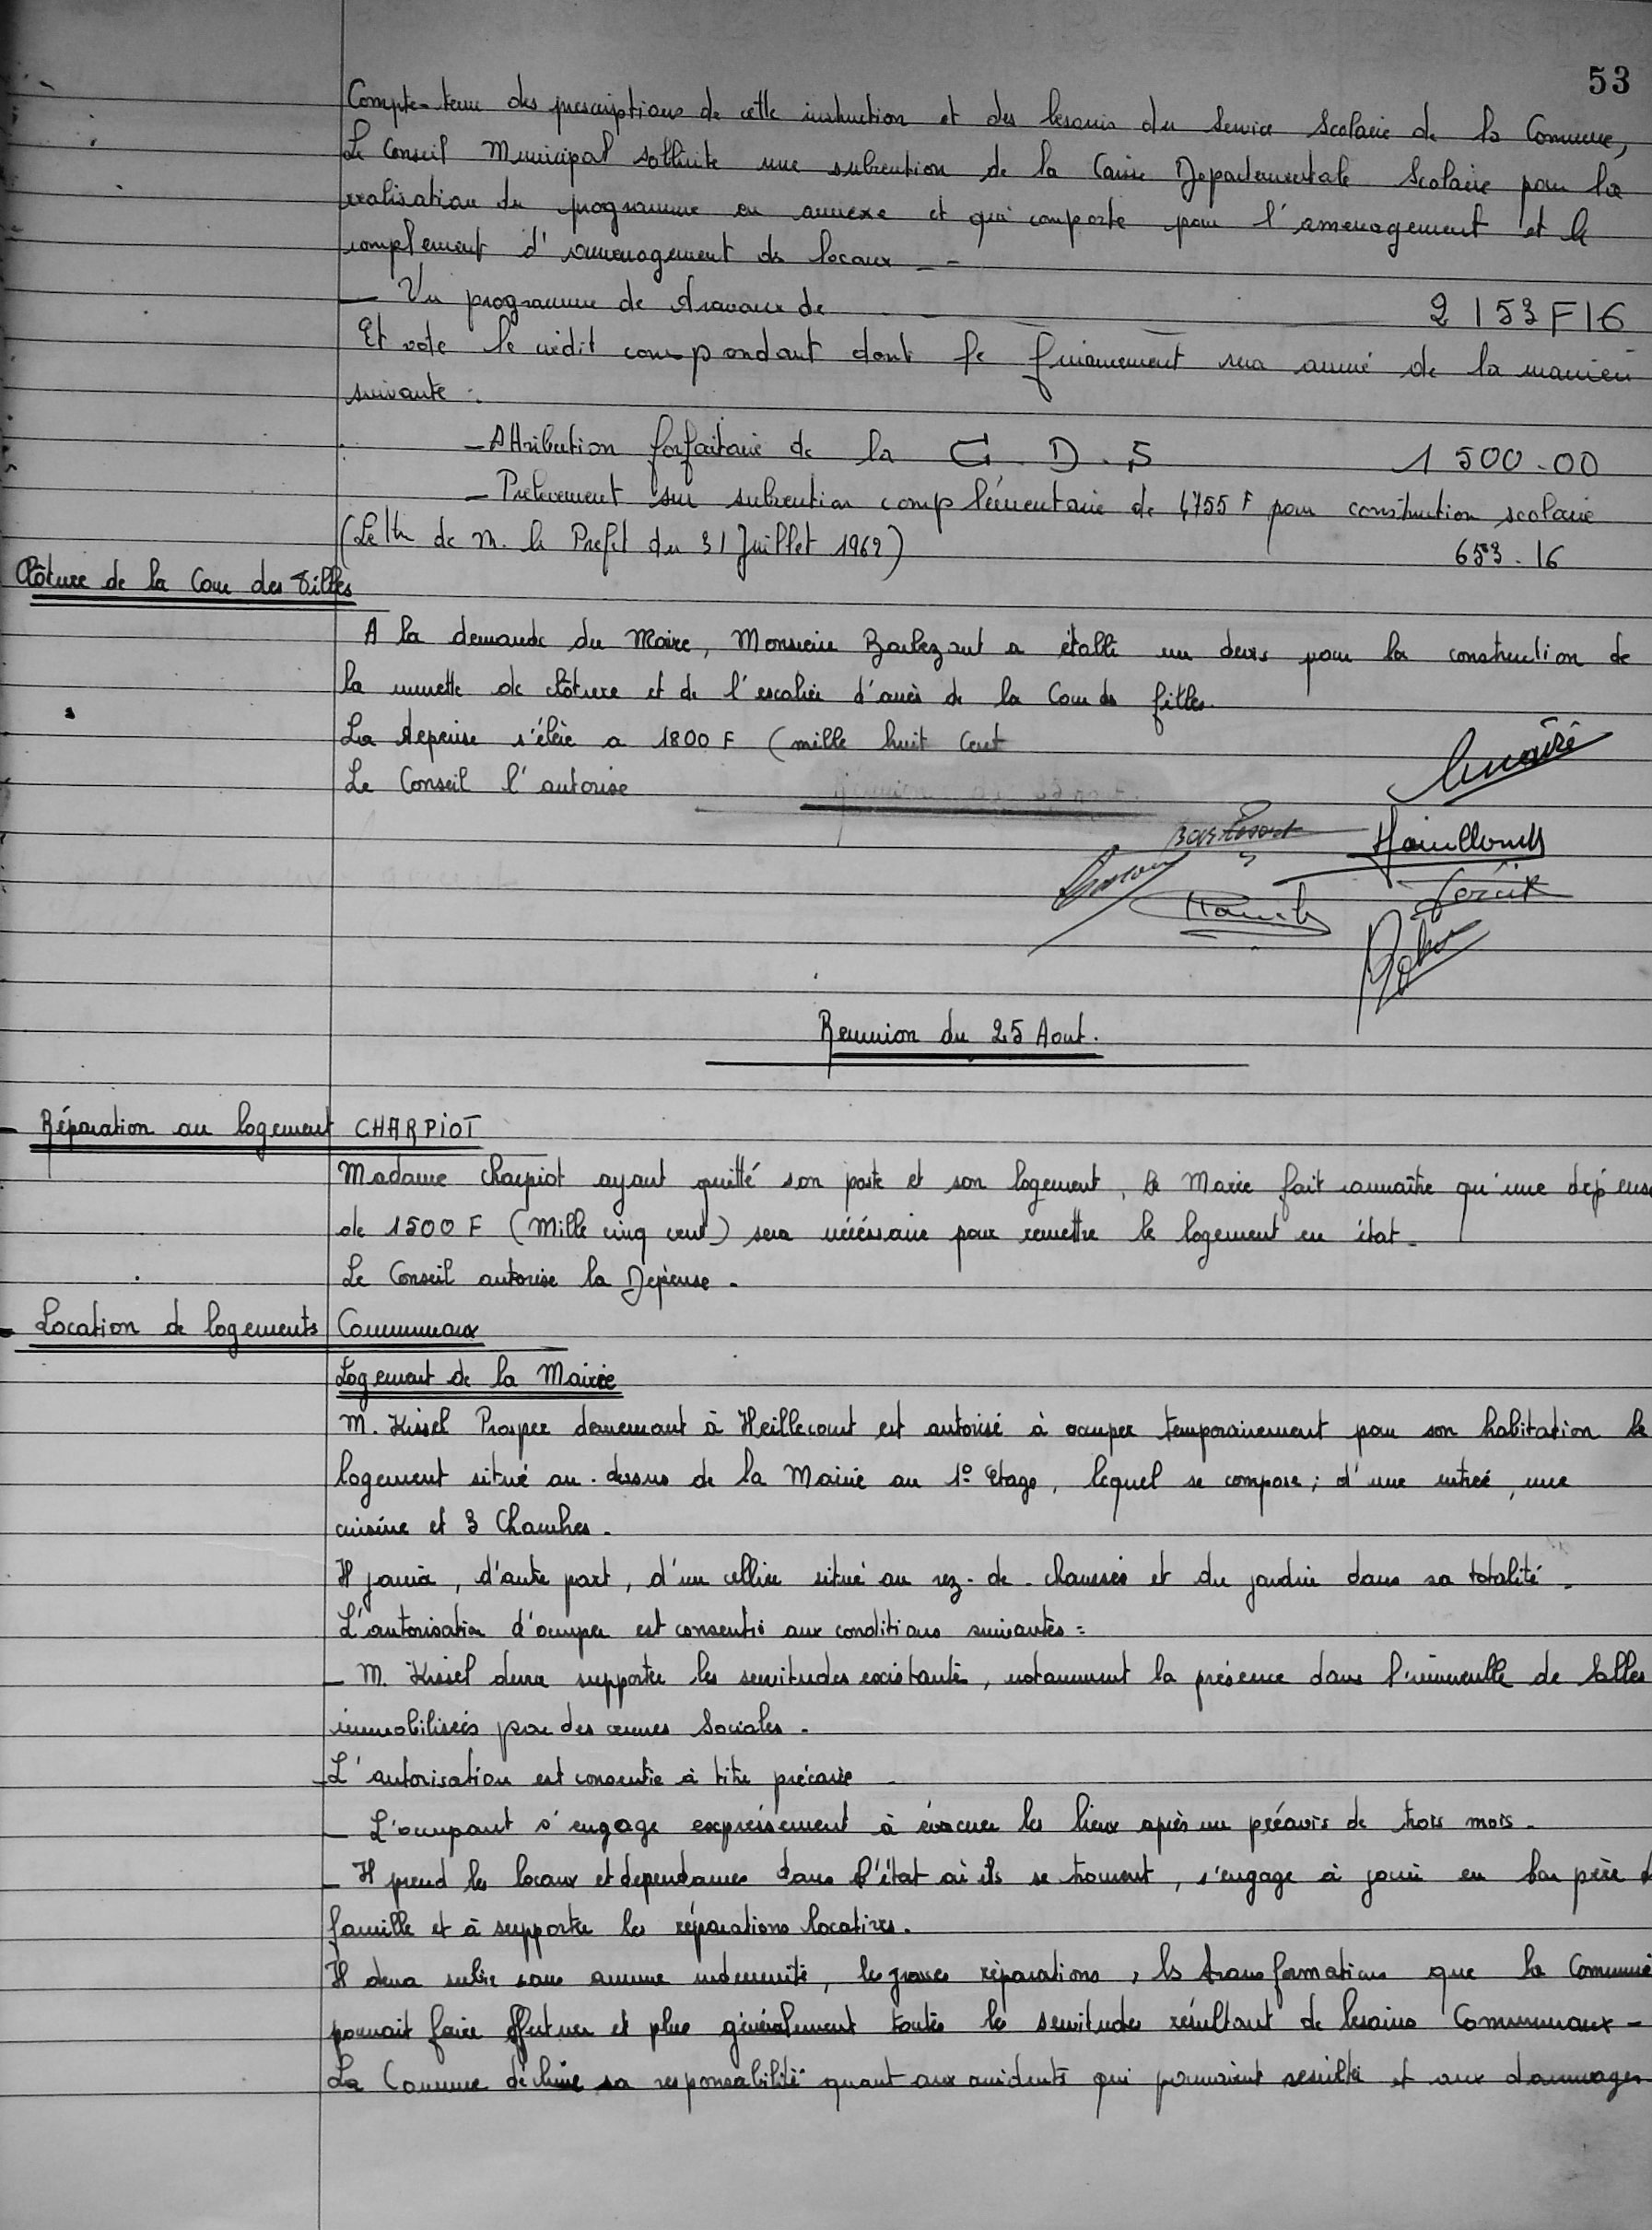 53
Compte-tenu des prescriptions de cette instruction et des besoins du Service Scolaire de la Commune,
Le Conseil Municipal sollicite une subvention de la Caisse Departementale Scolaire pour la
realisation du programme en annexe et qui comporte pour l'amenagement et le
complement d'amenagement des locaux _ -
_ Un programme de travaux de _ 2153F16
Et vote le crédit correspondant dont le financement sera assuré de la manière
suivante :
- Attribution forfaitaire de la C. D. S 1 500.00
- Prelevement sur subvention complémentaire de 4755 F pour construction scolaire
(Lettre de M. le Prefet du 31 Juillet 1962) 653.16
Clôture de la Cour des Filles
A la demande du Maire, Monsieur a établi un devis pour la construction de
la murette de clôture et de l'escalier d'accès de la Cour des filles.
La depense s'élève a 1800 F (mille huit Cent
Le Conseil l'autorise
Reunion du 25 Aout.
- Réparation au logement CHARPIOT
Madame Charpiot ayant quitté son poste et son logement, le Maire fait connaître qu'une dépense
de 1500 F (Mille cinq cent) sera nécéssaire pour remettre le logement en état -
Le Conseil autorise la Depense -
- Location de logements Communaux
Logement de la Mairie
M. Kissel Prosper demeurant à Heillecourt est autorisé à occuper temporairement pour son habitation le
logement situé au-dessus de la Mairie au 1º Etage, lequel se compose; d'une entrée, une
cuisine et 3 Chambres -
Il jouira, d'autre part, d'un cellier situé au rez-de-chaussée et du jardin dans sa totalité -
L'autorisation d'occuper est consentie aux conditions suivantes =
- M. Kissel devra supporter les servitudes existantes, notamment la présence dans l'immeuble de Salles
immobilisées par des œuvres Sociales -
- L'autorisation est consentie à titre précaire -
- L'occupant s'engage expréssement à évacuer les lieux après un préavis de trois mois -
- Il prend les locaux et dependances dans l'état où ils se trouvent, s'engage à jouir en bon père d
famille et à supporter les réparations locatives.
Il devra subir sans aucune indemnité, les grosses réparations, les transformations que la Commune
pourrait faire effectuer et plus généralement toutes les servitudes résultant de besoins Communaux -
La Commune décline sa responsabilité quant aux accidents qui pourraient resulter et aux dommages